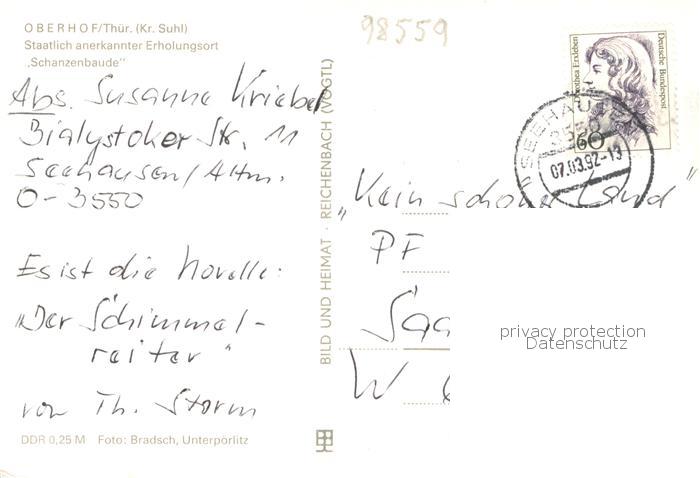 OBERHOF/Thür. (Kr. Suhl)
Staatlich anerkannter Erholungsort
„Schanzenbaude"
Abs. Susanne Kriebel
Bialystoker Str. 11
Seehausen/Altm.
O-3550
Es ist die Novelle:
„Der Schimmel-
reiter"
von Th. Storm
DDR 0,25 M Foto: Bradsch, Unterpörlitz
BILD UND HEIMAT · REICHENBACH (VOGTL)
98559
Dorothea Erxleben
Deutsche Bundespost
60
SEEHAUSEN
3550
07.03.92-13
„Kein schöner Land"
PF
Saa
W 6
privacy protection
Datenschutz